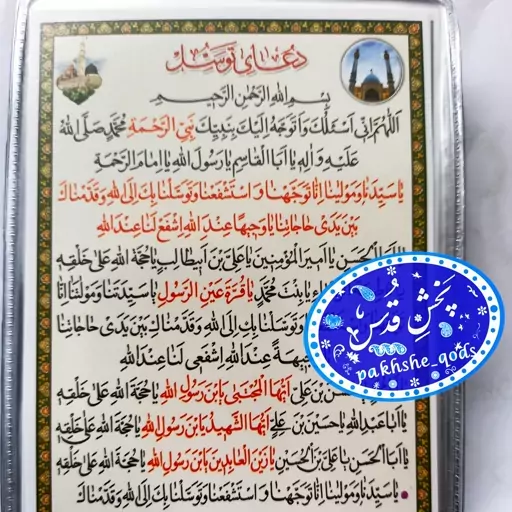 دعای توسل
بِسْمِ اللهِ الرَّحْمٰنِ الرَّحیمِ
اَللّهُمَّ اِنّی اَسْئَلُكَ وَاَتَوَجَّهُ اِلَیْكَ بِنَبِیِّكَ نَبِیِّ الرَّحْمَةِ مُحَمَّدٍ صَلَّی اللهُ
عَلَیْهِ وَ الِهِ یا اَبَا الْقاسِمِ یا رَسُولَ اللهِ یا اِمامَ الرَّحْمَةِ
یا سَیِّدَنا وَمَوْلینا اِنّا تَوَجَّهْنا وَ اسْتَشْفَعْنا وَتَوَسَّلْنا بِكَ اِلَی اللهِ وَقَدَّمْناكَ
بَیْنَ یَدَیْ حاجاتِنا یا وَجیهًا عِنْدَ اللهِ اِشْفَعْ لَنا عِنْدَ اللهِ
الْحَسَنِ یا اَمیرَ الْمُؤْمِنینَ یا عَلِیَّ بْنَ اَبیطالِبٍ یا حُجَّةَ اللهِ عَلی خَلْقِهِ
یا بِنْتَ مُحَمَّدٍ یا قُرَّةَ عَیْنِ الرَّسُولِ یا سَیِّدَتَنا وَمَوْلاتَنا اِنّا
وَتَوَسَّلْنا بِكِ اِلَی اللهِ وَقَدَّمْناكِ بَیْنَ یَدَیْ حاجاتِنا
عِنْدَ اللهِ اِشْفَعی لَنا عِنْدَ اللهِ
بْنَ عَلِیٍّ اَیُّهَا الْمُجْتَبی یَابْنَ رَسُولِ اللهِ یا حُجَّةَ اللهِ عَلی خَلْقِهِ
یا اَبا عَبْدِ اللهِ یا حُسَیْنَ بْنَ عَلِیٍّ اَیُّهَا الشَّهیدُ یَابْنَ رَسُولِ اللهِ یا حُجَّةَ اللهِ عَلی خَلْقِهِ
یا اَبَا الْحَسَنِ یا عَلِیَّ بْنَ الْحُسَیْنِ یا زَیْنَ الْعابِدینَ یَابْنَ رَسُولِ اللهِ یا حُجَّةَ اللهِ عَلی خَلْقِهِ
یا سَیِّدَنا وَمَوْلینا اِنّا تَوَجَّهْنا وَ اسْتَشْفَعْنا وَتَوَسَّلْنا بِكَ اِلَی اللهِ وَقَدَّمْناكَ
پخش قدس
pakhshe_qods